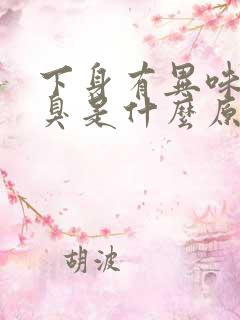 下身有異味
臭是什麼原
胡波